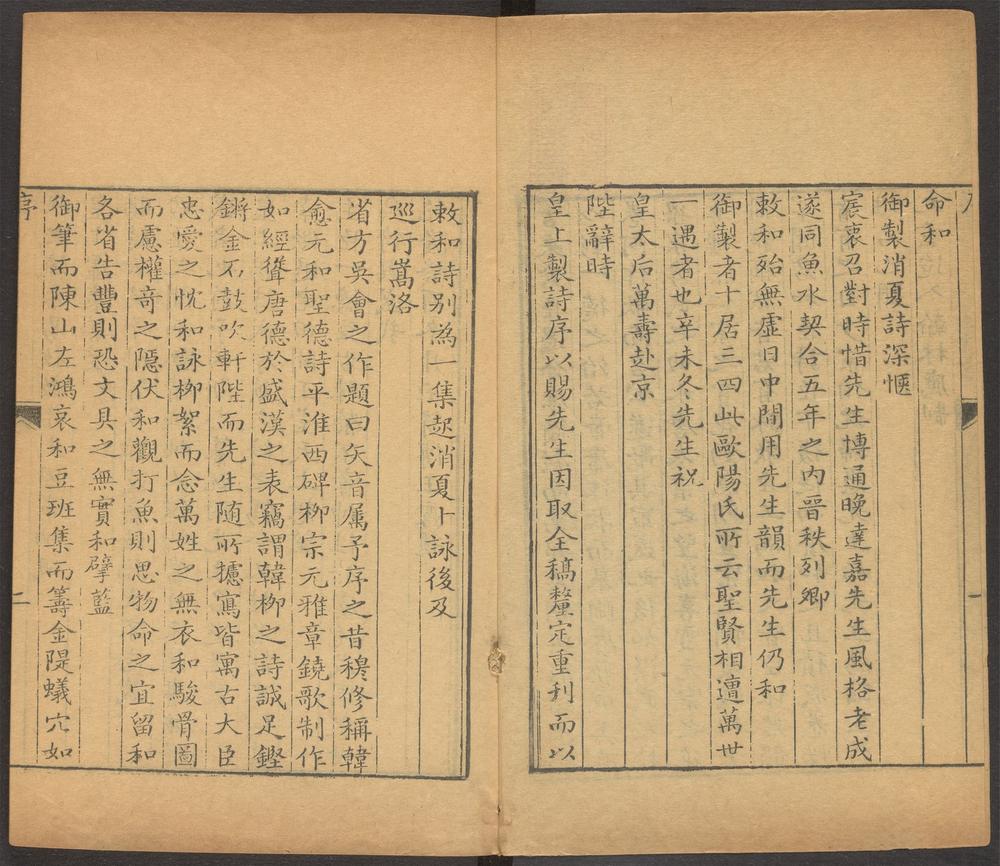 命和
御製消夏詩深愜
宸衷召對時惜先生博通晚達嘉先生風格老成
遂同魚水契合五年之内晉秩列卿
敕和殆無虛日中間用先生韻而先生仍和
御製者十居三四此歐陽氏所云聖賢相遭萬世
一遇者也辛未冬先生祝
皇太后萬壽赴京
陛辭時
皇上製詩序以賜先生因取全稿釐定重刋而以
一
敕和詩别為一集起消夏卜詠後及
巡行嵩洛
省方吳會之作題曰矢音属予序之昔穆修稱韓
愈元和聖德詩平淮西碑柳宗元雅章鐃歌制作
如經聳唐德於盛漢之表竊謂韓柳之詩誠足鏗
鏘金石鼓吹軒陛而先生随所攄寫皆寓古大臣
忠愛之忱和詠柳絮而念萬姓之無衣和駿骨圖
而慮權竒之隱伏和觀打魚則思物命之宜留和
各省告豐則恐文具之無實和擘藍
御筆而陳山左鴻哀和豆班集而籌金隄蟻穴如
序
二